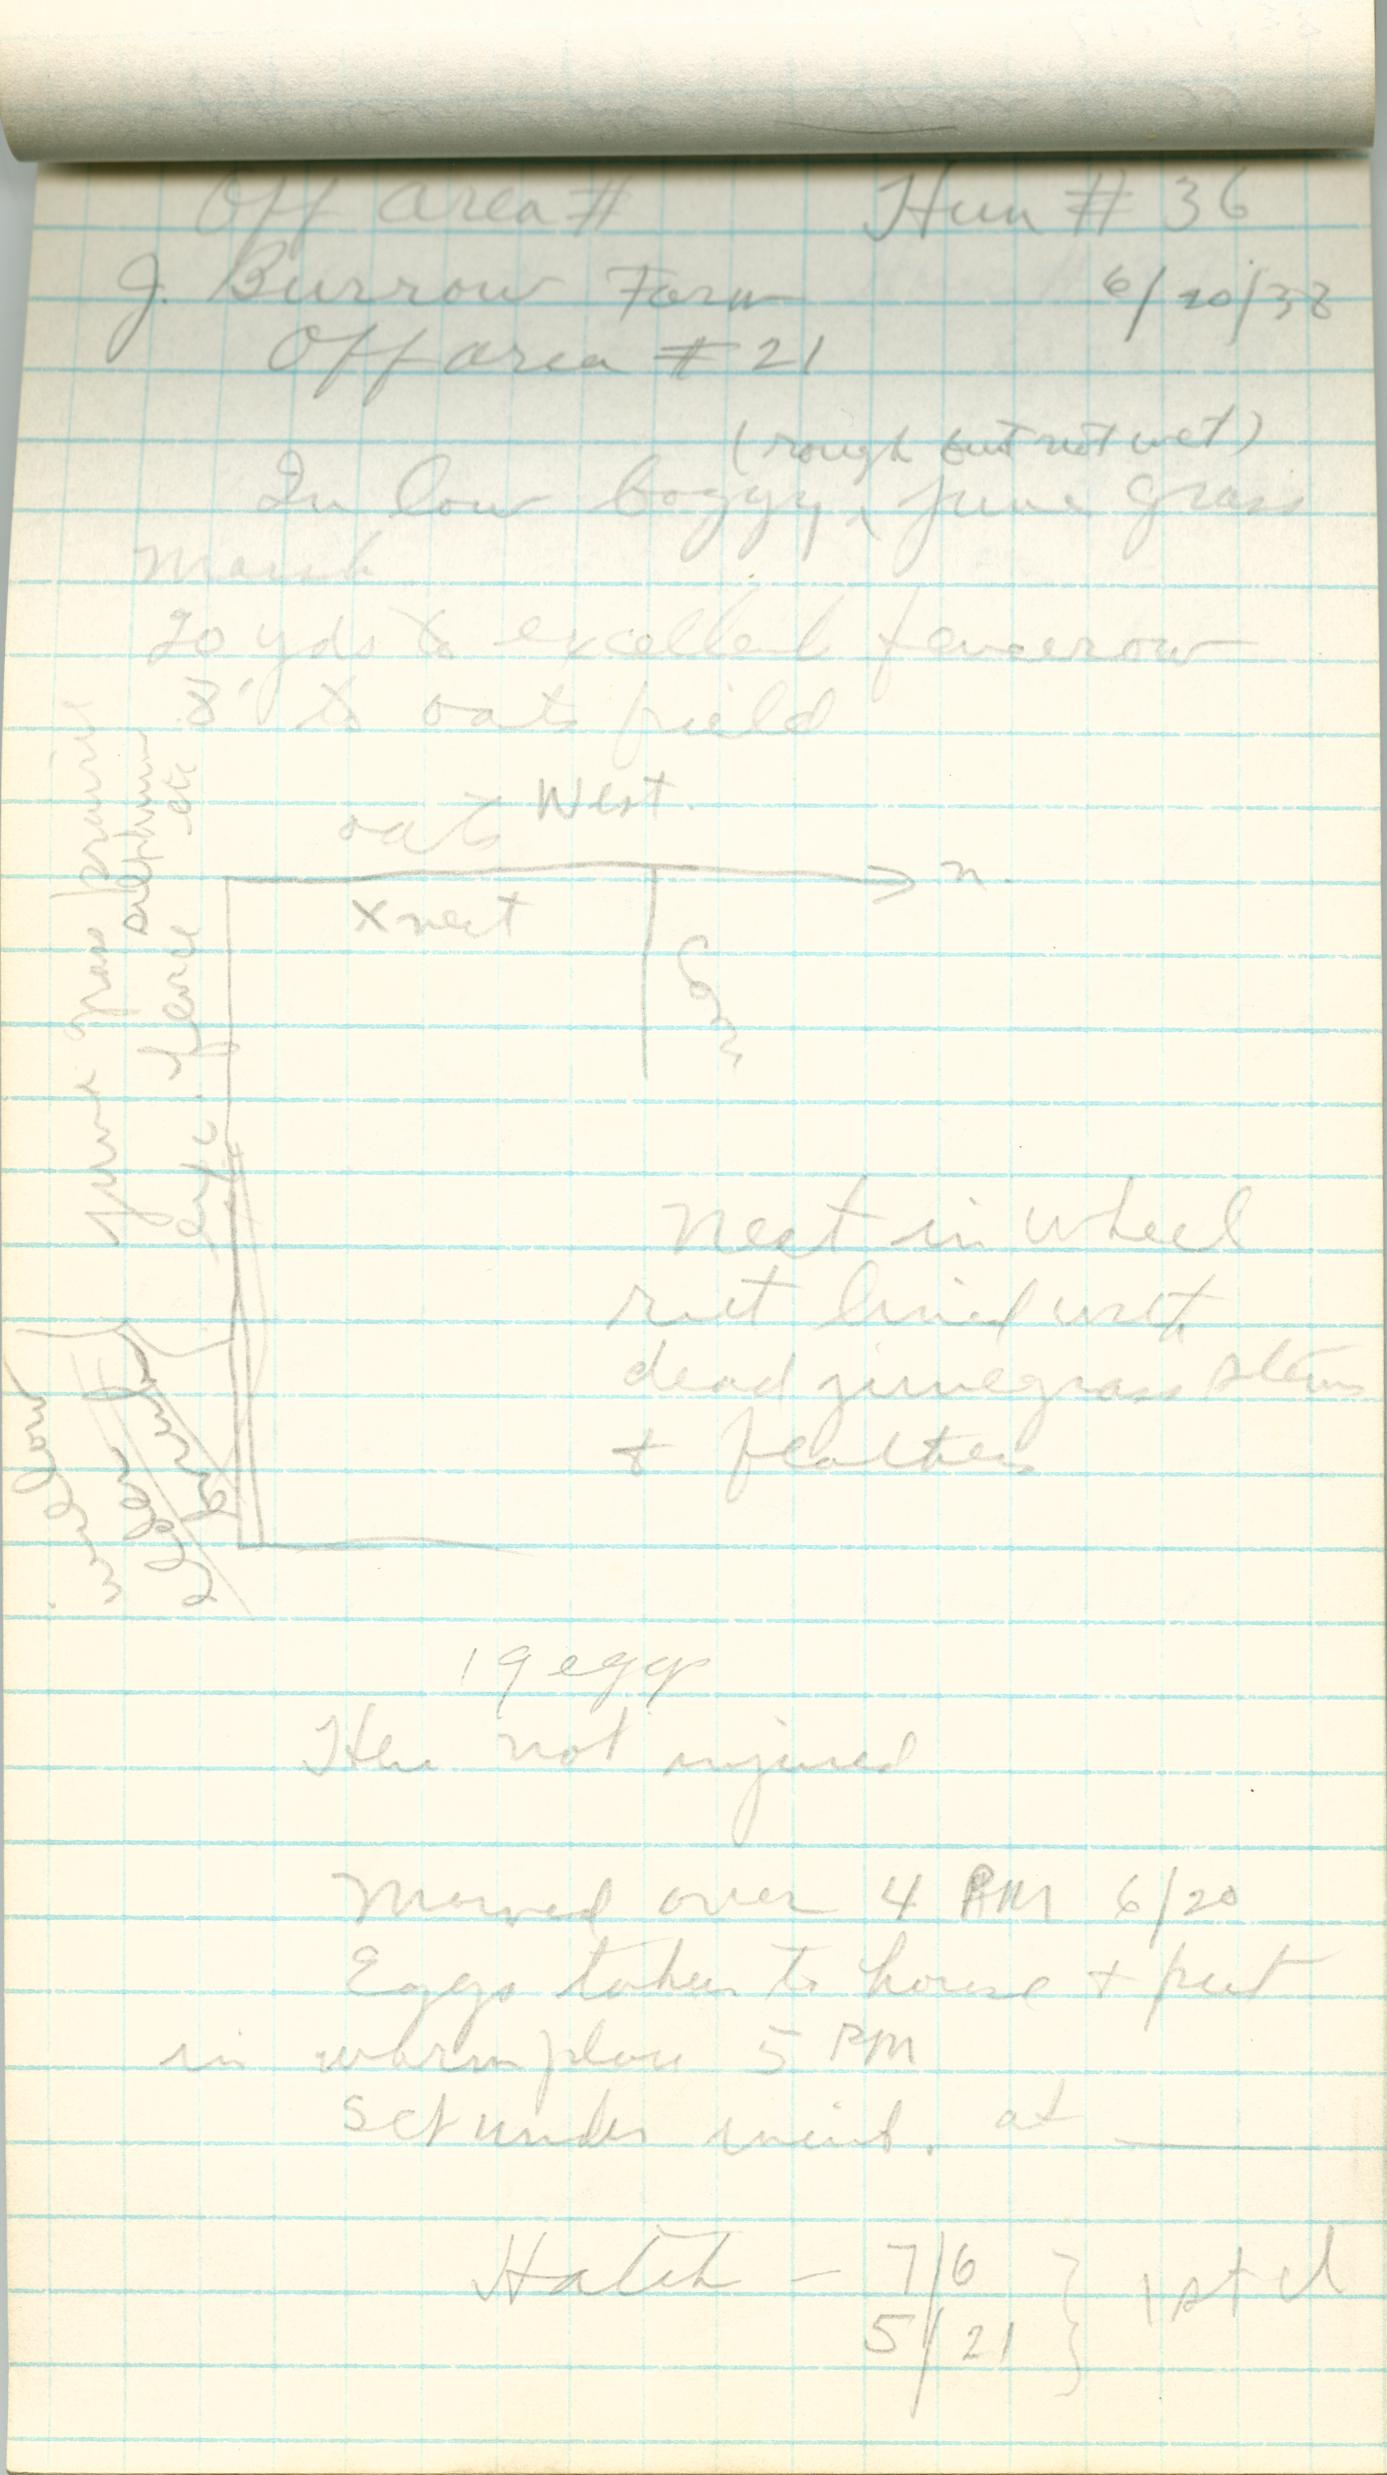 Off area # Hun # 36
J. Burrow Farm 6/20/38
Off area # 21
(rough but not wet)
In low boggy ^ june grass
marsh
20 yds to excellent fencerow
8' to oats field
oats West.
n.
x nest
Corn
june grass prairie
silphium etc
fence
willow
Nest in wheel
rut lined with
dead junegrass stems
+ feathers
19 eggs
Hen not injured
Mowed over 4 PM 6/20
Eggs taken to house + put
in warm place 5 PM
Set under incub. at ___
Hatch - 7/6 } 1st cl
5/21